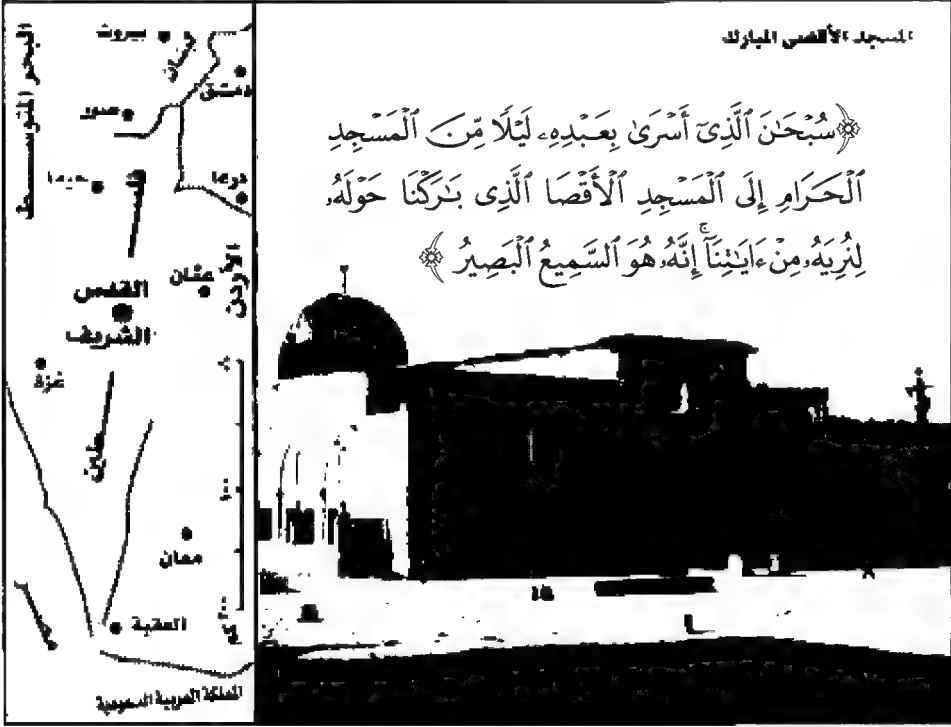 المسجد الأقصى المبارك
﴿سُبْحَٰنَ ٱلَّذِىٓ أَسْرَىٰ بِعَبْدِهِۦ لَيْلًا مِّنَ ٱلْمَسْجِدِ
ٱلْحَرَامِ إِلَى ٱلْمَسْجِدِ ٱلْأَقْصَا ٱلَّذِى بَٰرَكْنَا حَوْلَهُۥ
لِنُرِيَهُۥ مِنْ ءَايَٰتِنَآ ۚ إِنَّهُۥ هُوَ ٱلسَّمِيعُ ٱلْبَصِيرُ﴾
البحر المتوسط
بيروت
لبنان
دمشق
صور
حيفا
درعا
فلسطين
الأردن
عمّان
القدس
الشريف
غزة
٠
١٠٠
٢٠٠ كم
معان
العقبة
مصر
المملكة العربية السعودية